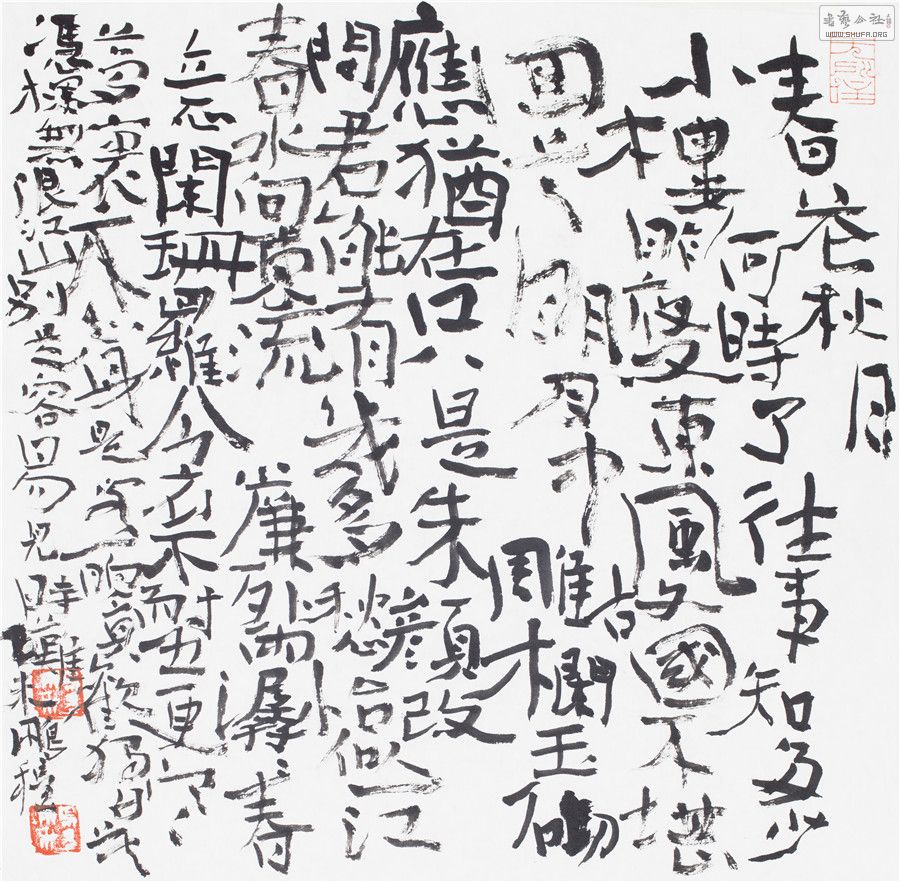 春花秋月何時了往事知多少
小樓昨夜又東風故國不堪
回首月明中雕欄玉砌
應猶在只是朱顏改
問君能有幾多愁恰似一江
春水向東流簾外雨潺潺春
意闌珊羅衾不耐五更寒
夢裏不知身是客一晌貪歡獨自莫
憑欄無限江山別容易見時難
書藝公社
WWW.SHUFA.ORG